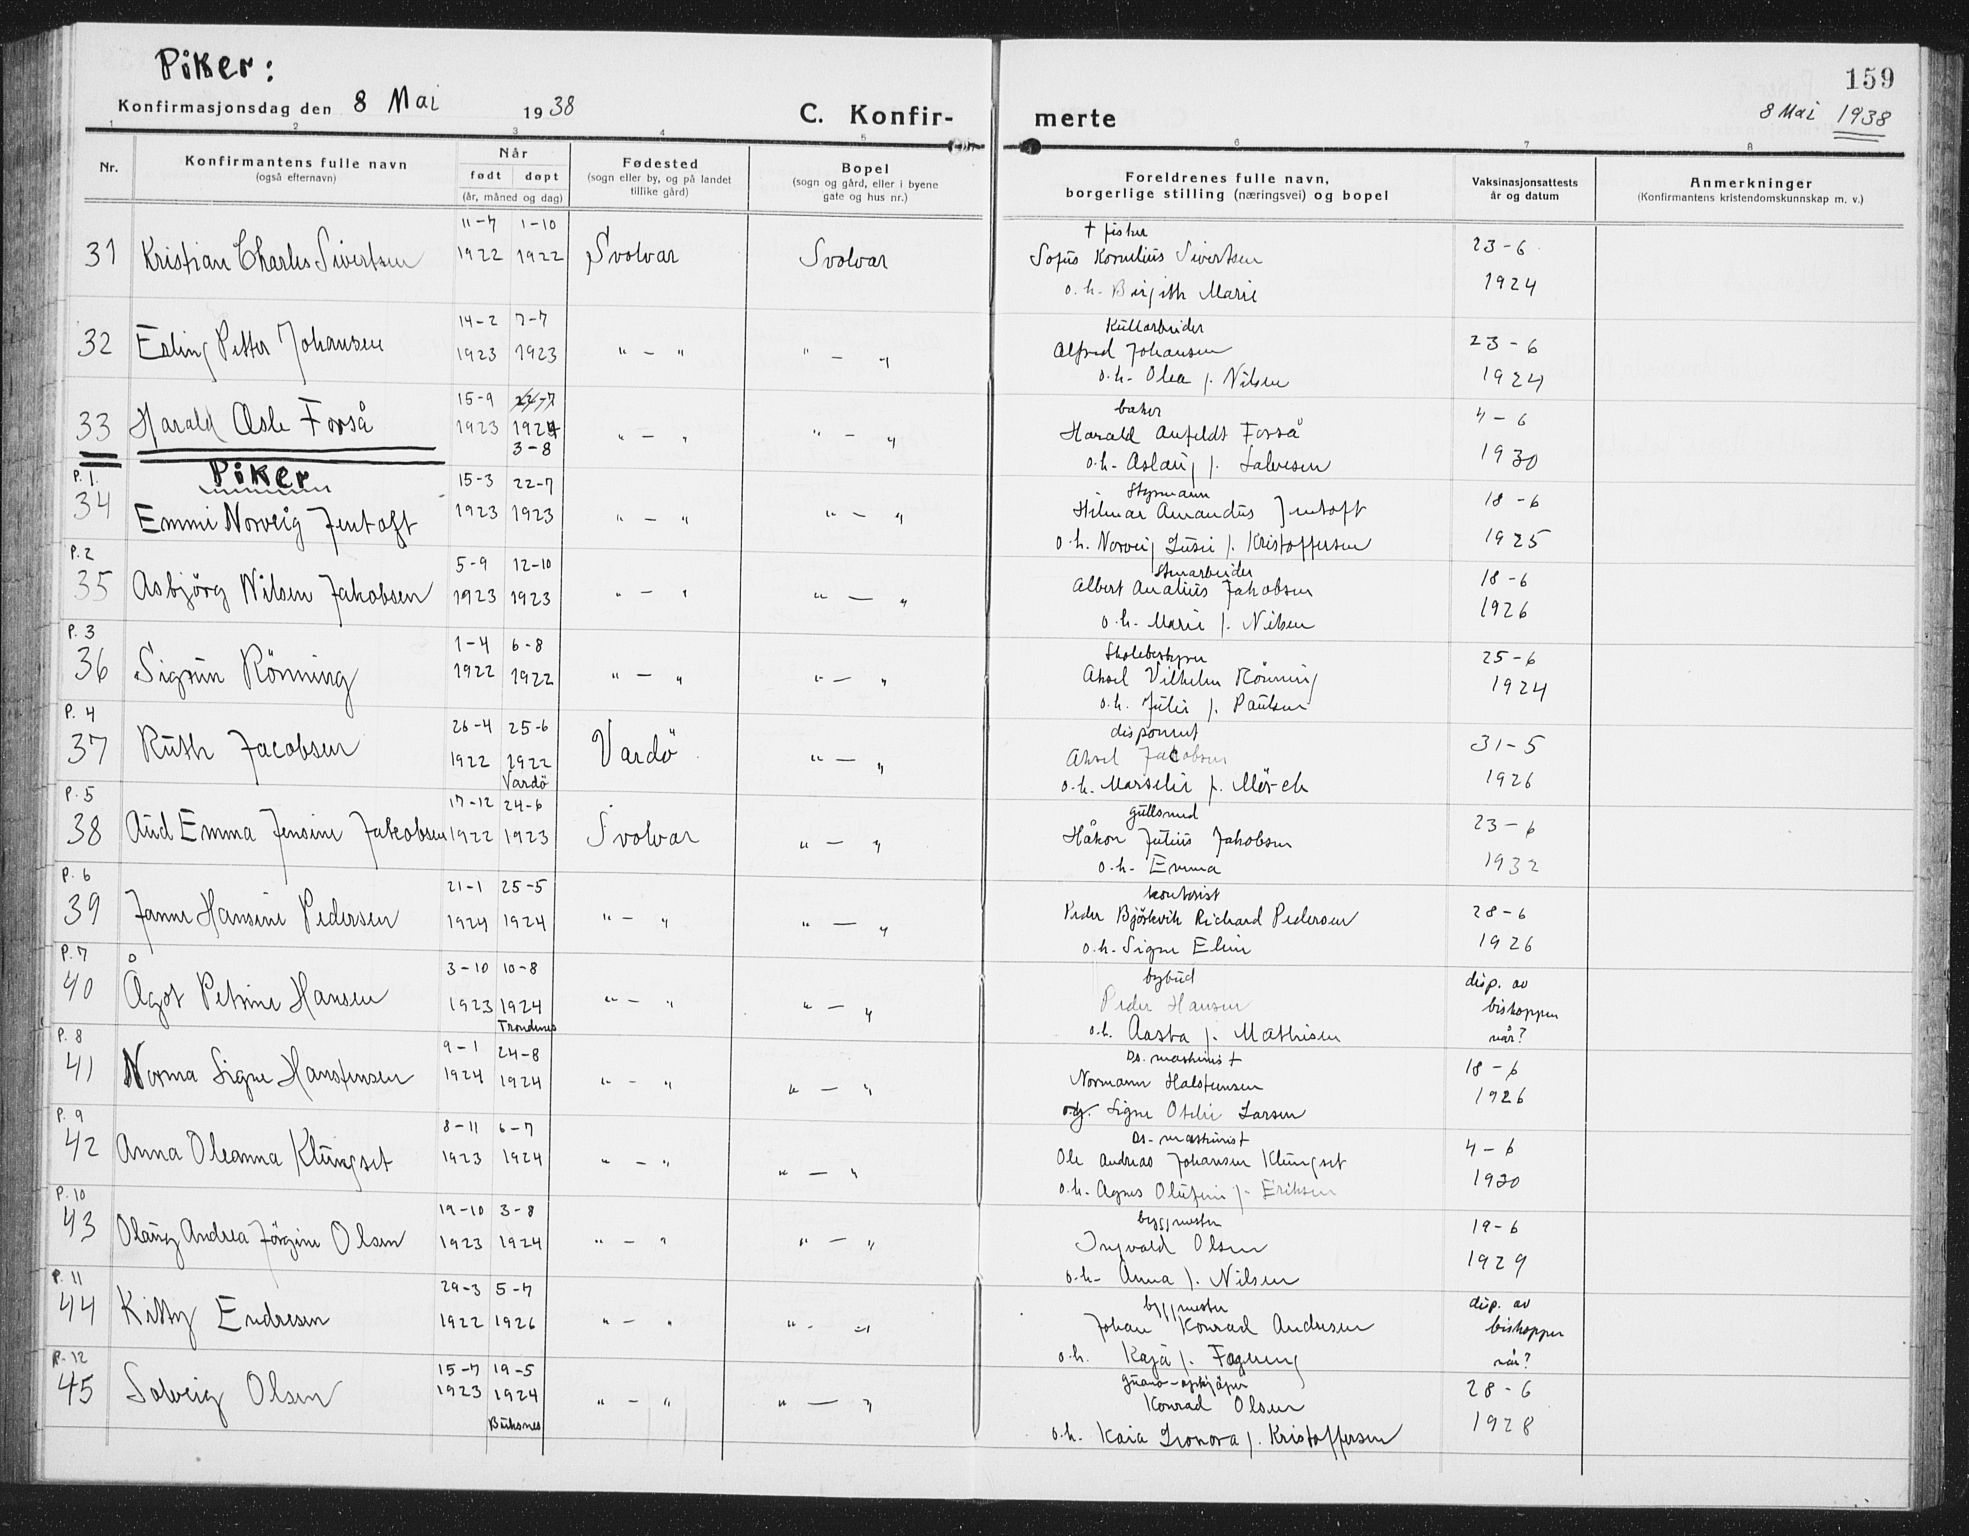 Piker:
Konfirmasjonsdag den 8 Mai 1938
C. Konfir-
merte
159
8 Mai 1938
1 2 3 4 5 6 7 8
Nr.
Konfirmantens fulle navn
(også efternavn)
Når
født døpt
(år, måned og dag)
Fødested
(sogn eller by, og på landet
tillike gård)
Bopel
(sogn og gård, eller i byene
gate og hus nr.)
Foreldrenes fulle navn,
borgerlige stilling (næringsvei) og bopel
Vaksinasjonsattests
år og datum
Anmerkninger
(Konfirmantens kristendomskunnskap m. v.)
11-7 1-10 † fisker
31 Kristian Charles Sivertsen 1922 1922 Svolvær Svolvær Sofus Kornelius Sivertsen 23-6
o. h. Birgith Marie 1924
14-2 7-7 Kullarbeider
32 Erling Petter Johansen 1923 1923 " - " " - " Alfred Johansen 23-6
o.h. Olea f. Nilsen 1924
15-9 22-7 baker
33 Harald Asle Forså 1923 1924 " - " " - " Harald Anfeldt Forså 4-6
3-8 o.h. Aslaug f. Salvesen 1930
Piker
P. 1. 15-3 22-7 Styrmann
34 Emmi Norveig Jentoft 1923 1923 " - " " - " Hilmar Amandus Jentoft 18-6
o.h. Norveig Lusie f. Kristoffersen 1925
P. 2 5-9 12-10 Stenarbeider
35 Asbjörg Nilsen Jakobsen 1923 1923 " - " " - " Albert Analius Jakobsen 18-6
o.h. Marie f. Nilsen 1926
P. 3 1-4 6-8 Skolebestyrer
36 Sigrun Rönning 1922 1922 " - " " - " Aksel Vilhelm Rönning 25-6
o.h. Julie f. Paulsen 1924
P. 4 26-4 25-6 disponent
37 Ruth Jacobsen 1922 1922 Vardö " - " Aksel Jacobsen 31-5
Vardö o.h. Marselie f. Mörch 1926
P. 5 17-12 24-6 gullsmed
38 Aud Emma Jensine Jakobsen 1922 1923 Svolvær " - " Håkon Julius Jakobsen 23-6
o.h. Emma 1932
P. 6 21-1 25-5 kontorist
39 Janne Hansine Pedersen 1924 1924 " - " " - " Peder Björkvik Richard Pedersen 28-6
o.h. Signe Elin 1926
P. 7 3-10 10-8 bybud disp. av
40 Ågot Petrine Hansen 1923 1924 " - " " - " Peder Hansen biskoppen
Trondenes o.h. Aasta f. Mathisen når?
P. 8 9-1 24-8 Ds. maskinist
41 Norma Signe Hanstensen 1924 1924 " - " " - " Normann Halstensen 18-6
og Signe Otelie Larsen 1926
P. 9 8-11 6-7 Ds. maskinist
42 Anna Oleanna Klungset 1923 1924 " - " " - " Ole Andreas Johansen Klungset 4-6
o.h. Agnes Olufine f. Eriksen 1930
P. 10 19-10 3-8 byggmester
43 Olaug Andrea Jörgine Olsen 1923 1924 " - " " - " Ingvald Olsen 19-6
o.h. Anna f. Nilsen 1929
P. 11 29-3 5-7 byggmester disp. av
44 Kitty Endresen 1922 1926 " - " " - " Johan Konrad Andresen biskoppen
o.h. Kaja f. Fagereng når?
P. 12 15-7 19-5 guano-opkjöper
45 Solveig Olsen 1923 1924 " - " " - " Konrad Olsen 28-6
Buksnes o.h. Kaia Leonora f. Kristoffersen 1928